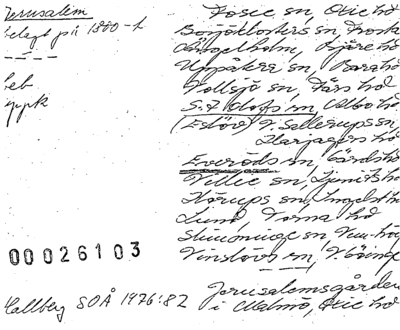 Jerusalem
belagt på 1800-t
Fosie sn, Oxie hd
Bosjöklosters sn, Frosta
Ängelholm, Bjäre hd
Uppåkra sn, Bara hd
Vollsjö sn, Färs hd
S:t Olofs sn, Albo hd
(Eslöv) V. Sallerups sn
Harjagers hd
Everöds sn, Gärds hd
Ljunits h
sn, Ingelst h
Lund, Torna hd
sn
Vinslövs sn, V. Göinge
00026103
Hallberg SOÅ 1976:82
Jerusalemsgården
i Malmö, Oxie hd